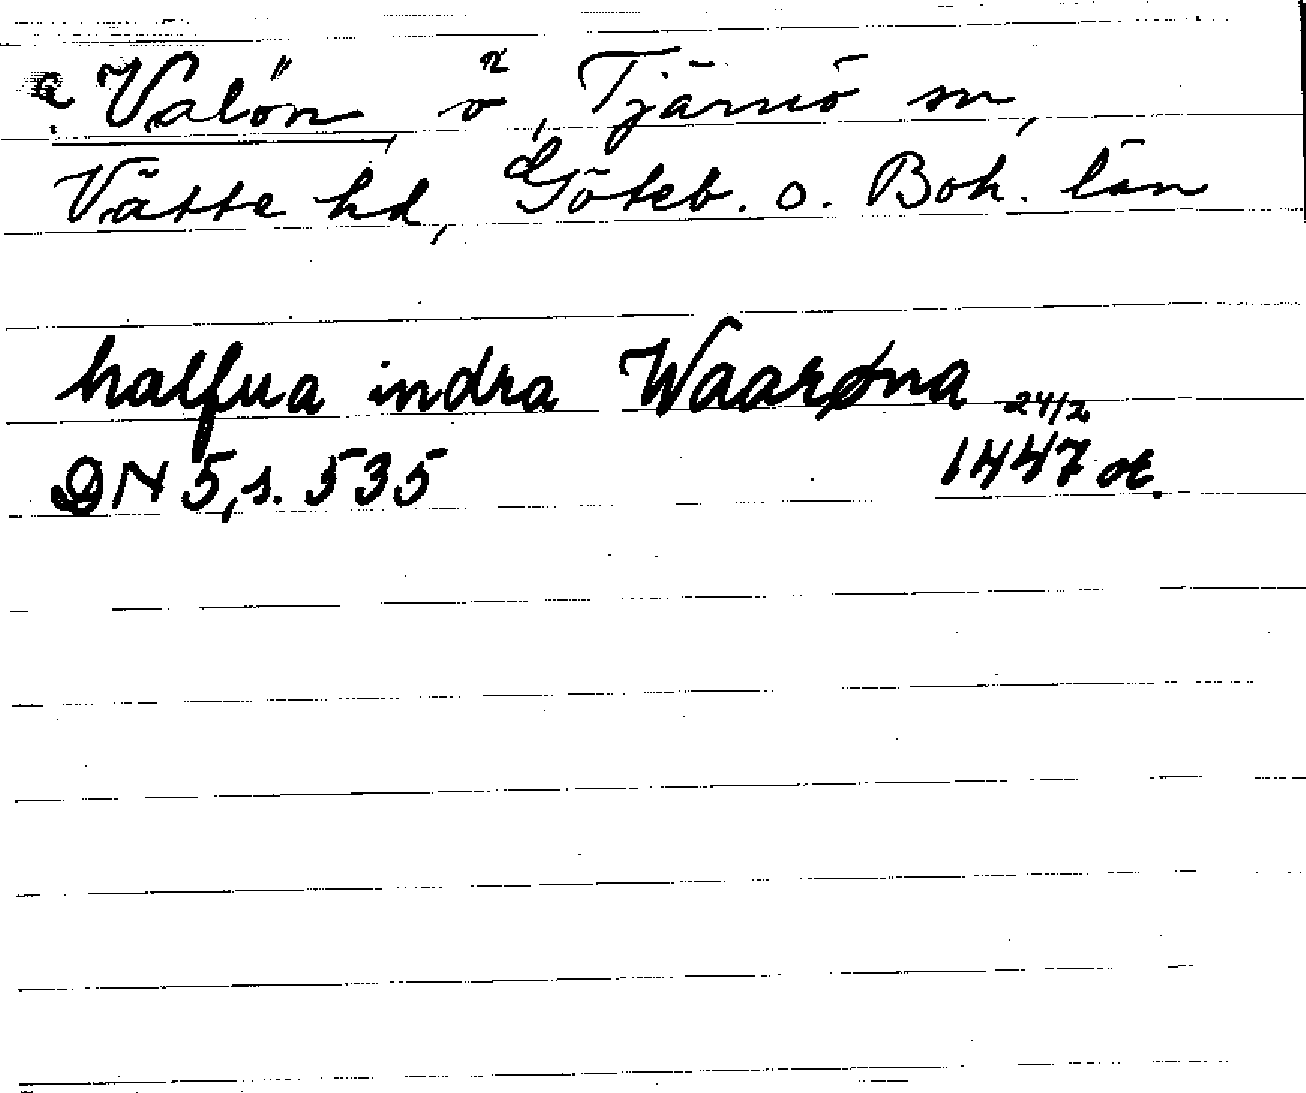 a Valön ö, Tjärnö sn,
Vätte hd, Göteb. o. Boh. län
halfua indra Waarøna 24/2
DN 5, s. 535 1447 or.